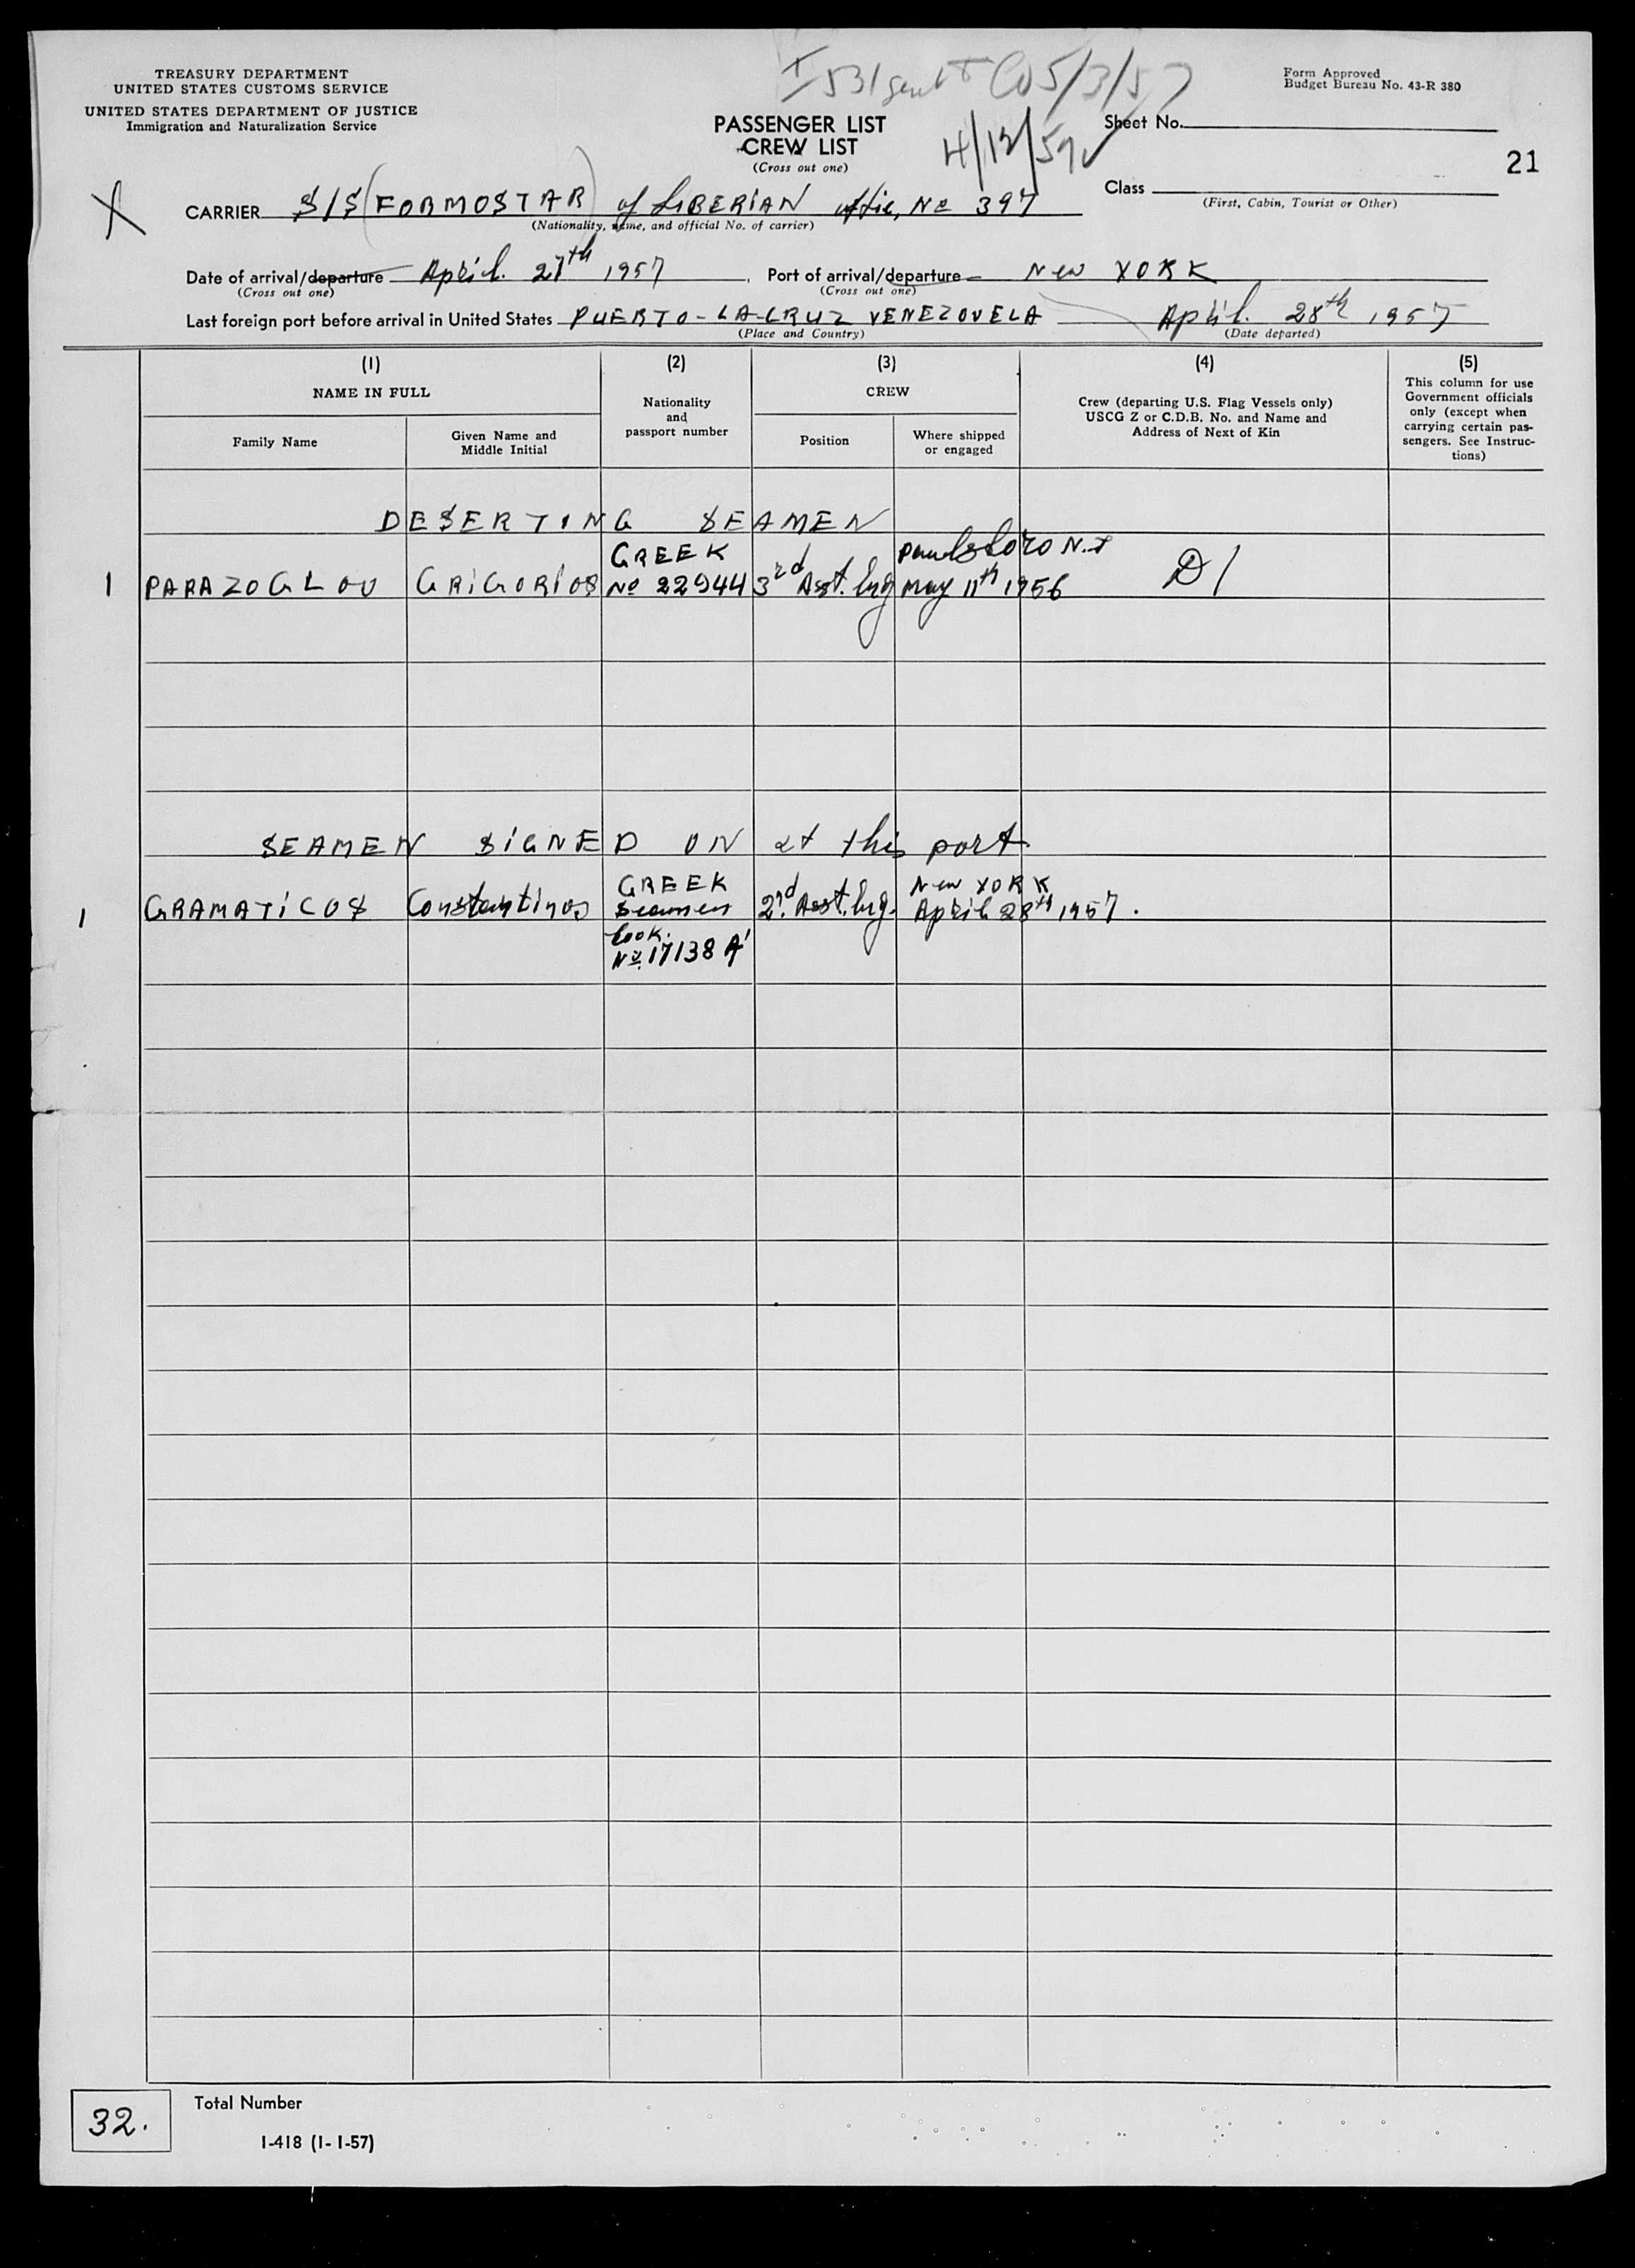 TREASURY DEPARTMENT
UNITED STATES CUSTOMS SERVICE
UNITED STATES DEPARTMENT OF JUSTICE
Immigration and Naturalization Service
I 531 sent 5/3/57
Form Approved
Budget Bureau No. 43-R 380
PASSENGER LIST
CREW LIST
(Cross out one)
4/12/57
Sheet No.
21
Class
(First, Cabin, Tourist or Other)
X
CARRIER S/S (FORMOSTAR) of LIBERIAN offic, No 397
(Nationality, name, and official No. of carrier)
Date of arrival/departure April. 27th, 1957. Port of arrival/departure New YORK
(Cross out one) (Cross out one)
Last foreign port before arrival in United States PUERTO-LA-CRUZ VENEZOVELA April. 28th, 1957
(Place and Country) (Date departed)
(1) (2) (3) (4) (5)
NAME IN FULL
Family Name
Given Name and
Middle Initial
Nationality
and
passport number
CREW
Position
Where shipped
or engaged
Crew (departing U.S. Flag Vessels only)
USCG Z or C.D.B. No. and Name and
Address of Next of Kin
This column for use
Government officials
only (except when
carrying certain pas-
sengers. See Instruc-
tions)
DESERTING SEAMEN
GREEK Paulsboro N.J
1 PARAZOGLOU GRIGORIOS No 22944 3rd Asst. Eng May 11th 1956 D/
SEAMEN SIGNED ON at this port.
GREEK New YORK
1 GRAMATICOS Constantinos Seamens 2nd. Asst. Eng. April 28th, 1957.
book.
No. 17138 A'
32.
Total Number
I-418 (1-1-57)